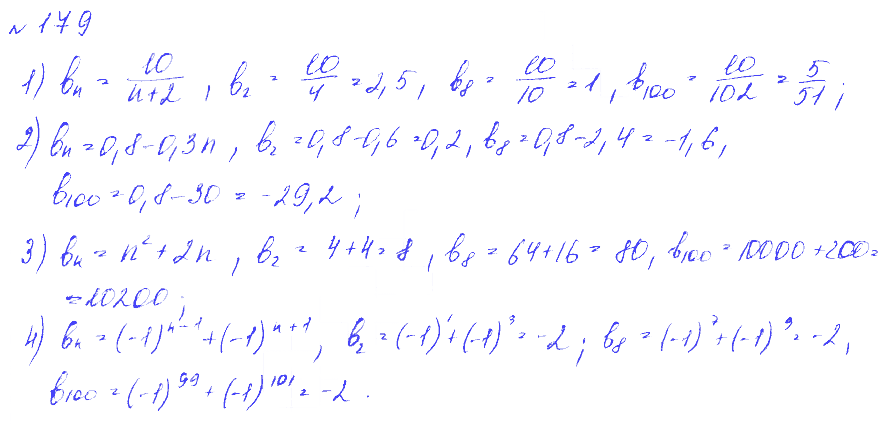 № 179
1) bₙ = 10/(n+2), b₂ = 10/4 = 2,5, b₈ = 10/10 = 1, b₁₀₀ = 10/102 = 5/51;
2) bₙ = 0,8-0,3n, b₂ = 0,8-0,6 = 0,2, b₈ = 0,8-2,4 = -1,6,
b₁₀₀ = 0,8-30 = -29,2;
3) bₙ = n² + 2n, b₂ = 4+4 = 8, b₈ = 64+16 = 80, b₁₀₀ = 10000 + 200 =
= 10200;
4) bₙ = (-1)ⁿ⁻¹ + (-1)ⁿ⁺¹, b₂ = (-1)¹ + (-1)³ = -2; b₈ = (-1)⁷ + (-1)⁹ = -2,
b₁₀₀ = (-1)⁹⁹ + (-1)¹⁰¹ = -2.